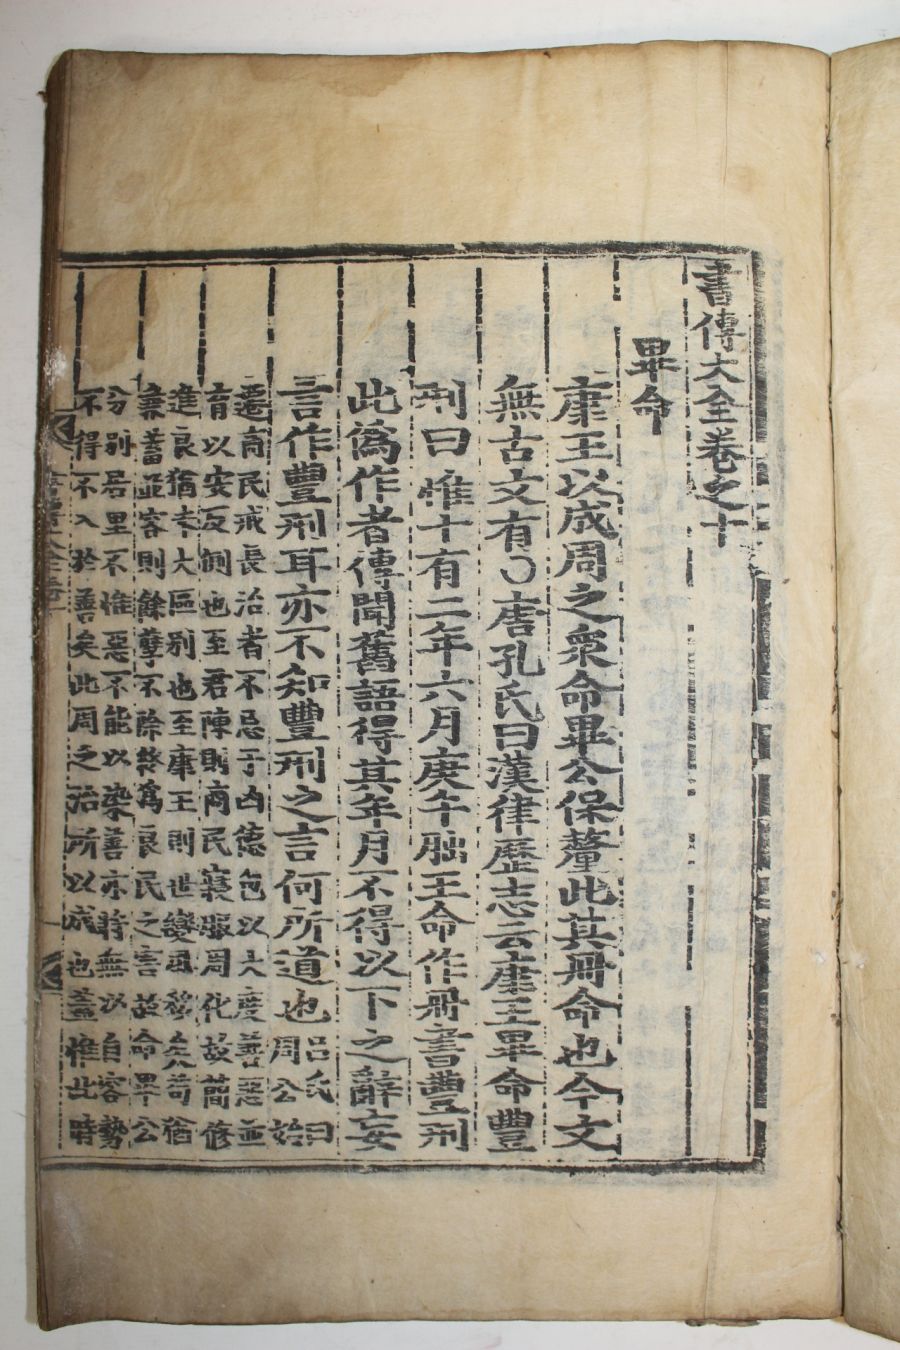 書傳大全卷之十
畢命
康王以成周之衆命畢公保釐此其冊命也今文
無古文有○唐孔氏曰漢律歷志云康王畢命豐
刑曰惟十有二年六月庚午朏王命作冊書豐刑
此僞作者傳聞舊語得其年月不得以下之辭妄
言作豐刑耳亦不知豐刑之言何所道也
呂氏曰
周公始
遷商民戒長治者不忌于凶德包以大度善惡並
育以安反側也至君陳則商民寖服周化故簡修
進良猶未大區別也至康王則世變風移矣苟猶
兼蓄並容則餘孽不除終爲良民之害故命畢公
分別居里不惟惡不能以染善亦將無以自容勢
不得不入於善矣此周之治所以成也蓋惟此時